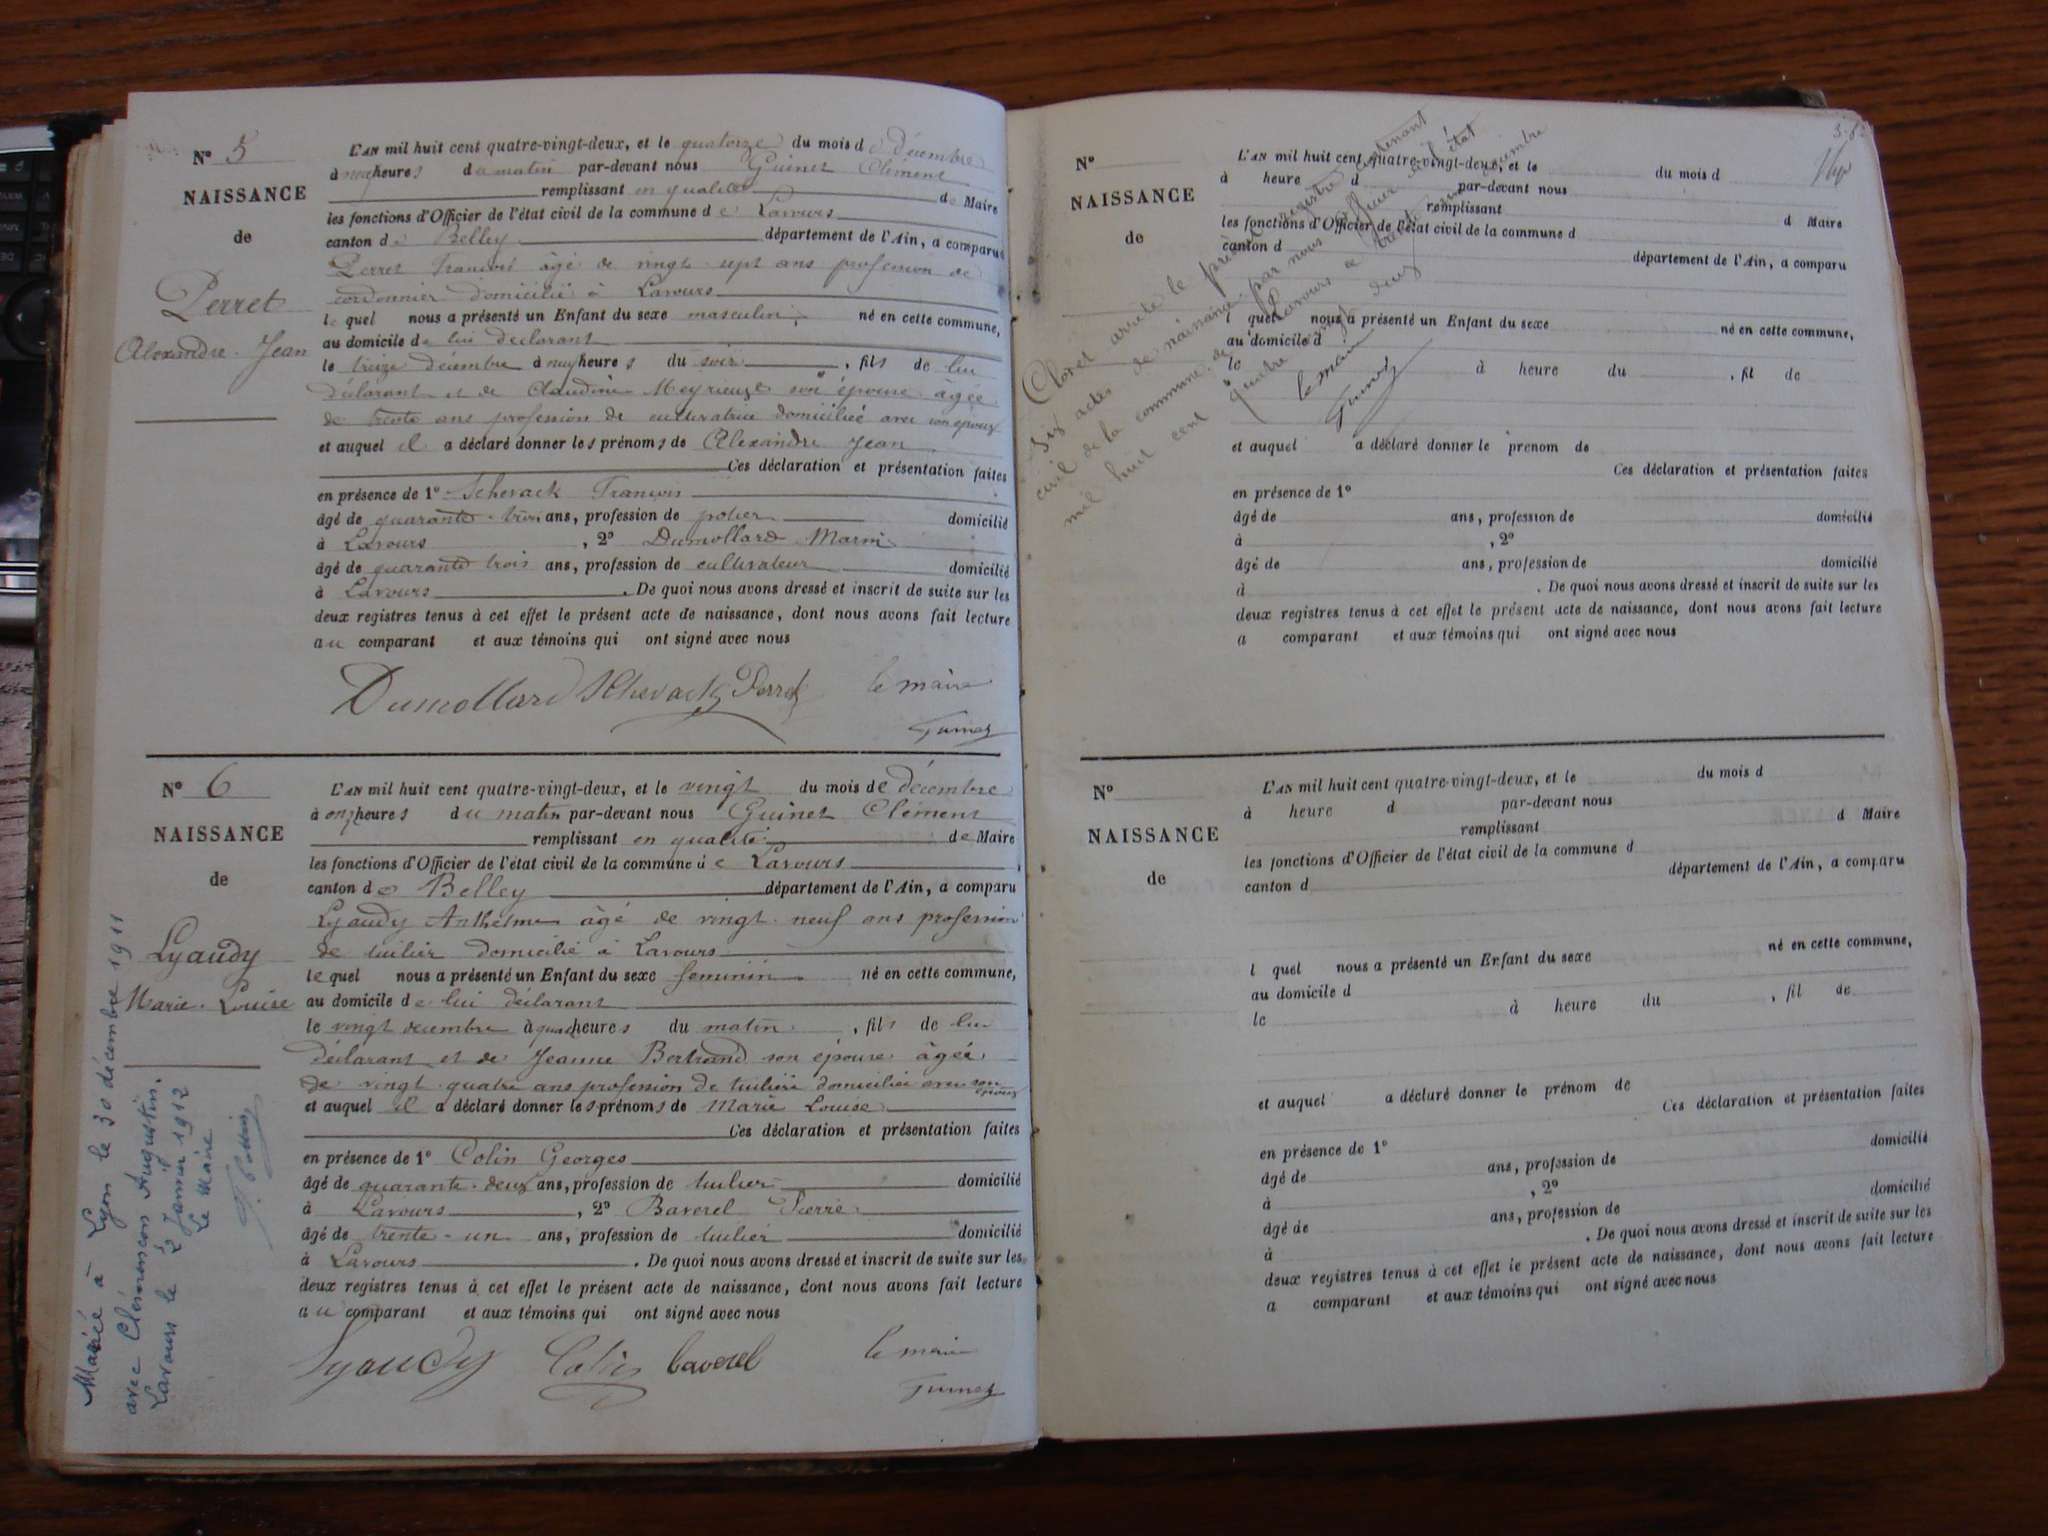 N° 5
NAISSANCE
de
Perret
Alexandre Jean
L'AN mil huit cent quatre-vingt-deux, et le quatorze du mois de décembre
à neuf heures du matin par-devant nous Guinet Clément
remplissant en qualité de Maire
les fonctions d'Officier de l'état civil de la commune de Lavours
canton de Belley département de l'Ain, a comparu
Perret François âgé de vingt sept ans profession de
cordonnier domicilié à Lavours
lequel nous a présenté un Enfant du sexe masculin, né en cette commune,
au domicile de lui déclarant
le treize décembre à neuf heures du soir, fils de lui
déclarant et de Claudine Meyrieuze son épouse âgée
de trente ans profession de cultivatrice domiciliée avec son époux
et auquel il a déclaré donner les prénoms de Alexandre Jean
Ces déclaration et présentation faites
en présence de 1° Schevack François
âgé de quarante trois ans, profession de potier domicilié
à Lavours, 2° Dumollard Marin
âgé de quarante trois ans, profession de cultivateur domicilié
à Lavours. De quoi nous avons dressé et inscrit de suite sur les
deux registres tenus à cet effet le présent acte de naissance, dont nous avons fait lecture
au comparant et aux témoins qui ont signé avec nous
Dumollard Schevack Perret le maire
Guinet
N° 6
NAISSANCE
de
Lyaudy
Marie Louise
Mariée à Lyon le 30 décembre 1911
avec Clémencon Augustin.
Lavours le 2 Janvier 1912
Le Maire
L'AN mil huit cent quatre-vingt-deux, et le vingt du mois de décembre
à onze heures du matin par-devant nous Guinet Clément
remplissant en qualité de Maire
les fonctions d'Officier de l'état civil de la commune de Lavours
canton de Belley département de l'Ain, a comparu
Lyaudy Anthelme âgé de vingt neuf ans profession
de tuilier domicilié à Lavours
lequel nous a présenté un Enfant du sexe feminin né en cette commune,
au domicile de lui déclarant
le vingt decembre à quatre heures du matin, fils de lui
déclarant et de Jeanne Bertrand son épouse âgée
de vingt quatre ans profession de tuilière domiciliée avec son époux
et auquel il a déclaré donner les prénoms de Marie Louise
Ces déclaration et présentation faites
en présence de 1° Colin Georges
âgé de quarante deux ans, profession de tuilier domicilié
à Lavours, 2° Baverel Pierre
âgé de trente un ans, profession de tuilier domicilié
à Lavours. De quoi nous avons dressé et inscrit de suite sur les
deux registres tenus à cet effet le présent acte de naissance, dont nous avons fait lecture
au comparant et aux témoins qui ont signé avec nous
Lyaudy Colin baverel le maire
Guinet
N°
NAISSANCE
de
L'AN mil huit cent quatre-vingt-deux, et le du mois d
à heure d par-devant nous
remplissant d Maire
les fonctions d'Officier de l'état civil de la commune d
canton d département de l'Ain, a comparu
l quel nous a présenté un Enfant du sexe né en cette commune,
au domicile d
le à heure du , fil de
et auquel a déclaré donner le prénom de
Ces déclaration et présentation faites
en présence de 1°
âgé de ans, profession de domicilié
à , 2°
âgé de ans, profession de domicilié
à . De quoi nous avons dressé et inscrit de suite sur les
deux registres tenus à cet effet le présent acte de naissance, dont nous avons fait lecture
a comparant et aux témoins qui ont signé avec nous
Clos et arrêté le présent registre contenant
Six actes de naissance par nous officier de l'état
civil de la commune de Lavours le trente un décembre
mil huit cent quatre vingt deux
le maire
Guinet
N°
NAISSANCE
de
L'AN mil huit cent quatre-vingt-deux, et le du mois d
à heure d par-devant nous
remplissant d Maire
les fonctions d'Officier de l'état civil de la commune d
canton d département de l'Ain, a comparu
l quel nous a présenté un Enfant du sexe né en cette commune,
au domicile d
le à heure du , fil de
et auquel a déclaré donner le prénom de
Ces déclaration et présentation faites
en présence de 1° domicilié
âgé de ans, profession de
à , 2° domicilié
âgé de ans, profession de
à . De quoi nous avons dressé et inscrit de suite sur les
deux registres tenus à cet effet le présent acte de naissance, dont nous avons fait lecture
a comparant et aux témoins qui ont signé avec nous